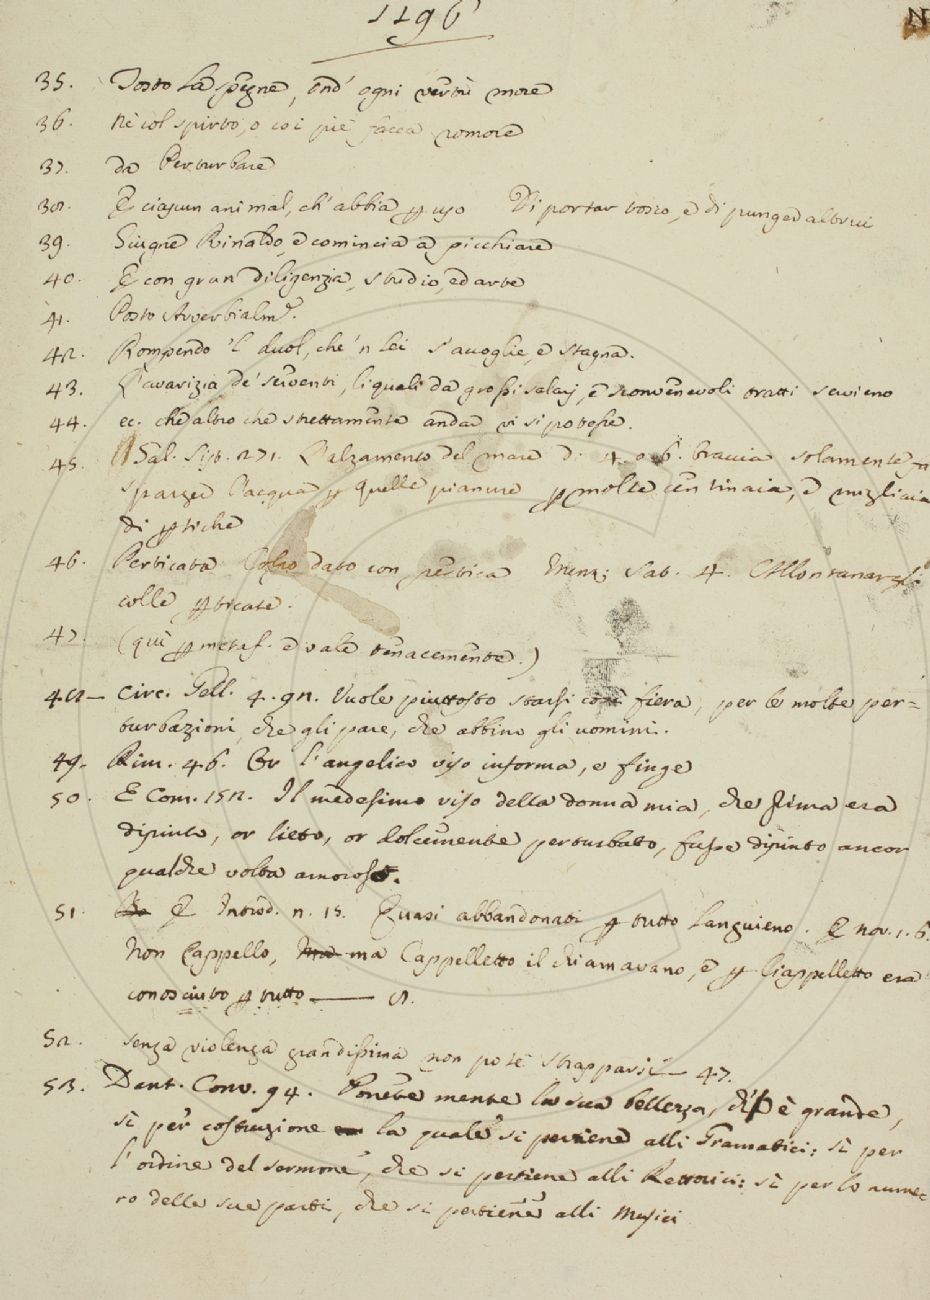 1196
N
35. Tosto la spigne, ond' ogni vertù more
36. Nè col spirto, o coi piè faccia romore
37. da Perturbare
38. E ciascun animal, ch' abbia p uso Di portar tosco, e di punger altrui
39. Giugne Rinaldo, e comincia a picchiare
40. E con gran diligenzia, studio, ed arte
41. Posto Avverbialm.e
42. Rompendo 'l duol, che 'n lei s' accoglie, e stagna.
43. L'avarizia de' serventi, li quali da grossi salarj, e sconvenevoli tratti servieno
44. ec. che altro che strettamente andar vi si potesse.
45. Gal. Sist. 271. L'alzamento del mare di 4. o 6. braccia solamente
sparger l'acqua p quelle pianure p molte centinaia, e migliaia
di ptiche
46. Perticata Colpo dato con pertica Menz. Sat. 4. Allontanargli
colle pticate.
47. (quì p metaf. e vale tenacemente.)
48 – Circ. Gell. 4. 98. Vuole piuttosto starsi così fiera, per le molte per=
turbazioni, che gli pare, che abbino gli uomini.
49. Rim. 46. Or l'angelico viso informa, e finge
50. E Com. 158. Il medesimo viso della donna mia, che prima era
dipinto, or lieto, or dolcemente perturbato, fusse dipinto ancor
qualche volta amoroso.
51. E Introd. n. 15. Quasi abbandonati p tutto languieno. E nov. 1. 6.
Non Cappello, ma Cappelletto il chiamavano, e p Ciappelletto era
conosciuto p tutto —— 8.
52. senza violenza grandissima non potè strapparsi – 47.
53. Dant. Conv. 94. Ponete mente la sua bellezza, ch' è grande,
sì per costruzione la quale si pertiene alli Gramatici: sì per
l'ordine del sermone, che si pertiene alli Rettorici: sì per lo nume-
ro delle sue parti, che si pertiene alli Musici